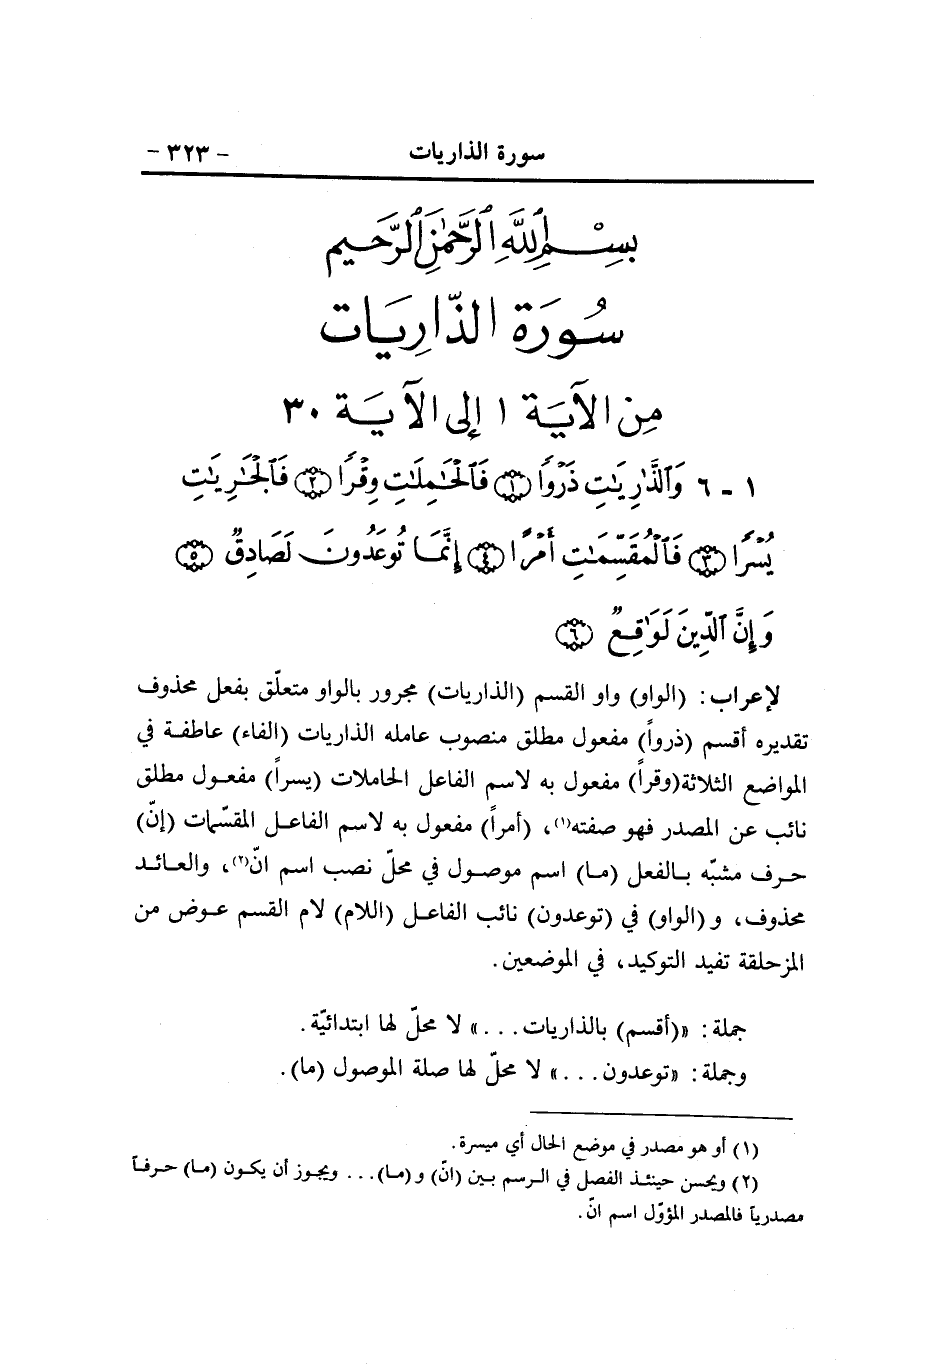 سورة الذاريات - ٣٢٣ -
بِسْمِ اللَّهِ الرَّحْمَٰنِ الرَّحِيمِ
سُورَة الذّارِيَات
مِن الآيَة ١ إلى الآيَة ٣٠
١ - ٦ وَٱلذَّٰرِيَٰتِ ذَرْوًا ﴿١﴾ فَٱلْحَٰمِلَٰتِ وِقْرًا ﴿٢﴾ فَٱلْجَٰرِيَٰتِ
يُسْرًا ﴿٣﴾ فَٱلْمُقَسِّمَٰتِ أَمْرًا ﴿٤﴾ إِنَّمَا تُوعَدُونَ لَصَادِقٌ ﴿٥﴾
وَإِنَّ ٱلدِّينَ لَوَٰقِعٌ ﴿٦﴾
لإعراب: (الواو) واو القسم (الذاريات) مجرور بالواو متعلّق بفعل محذوف
تقديره أقسم (ذرواً) مفعول مطلق منصوب عامله الذاريات (الفاء) عاطفة في
المواضع الثلاثة(وقراً) مفعول به لاسم الفاعل الحاملات (يسراً) مفعول مطلق
نائب عن المصدر فهو صفته(١)، (أمراً) مفعول به لاسم الفاعل المقسّمات (إنّ)
حرف مشبّه بالفعل (ما) اسم موصول في محلّ نصب اسم انّ(٢)، والعائد
محذوف، و (الواو) في (توعدون) نائب الفاعل (اللام) لام القسم عوض من
المزحلقة تفيد التوكيد، في الموضعين.
جملة: «(أقسم) بالذاريات...» لا محلّ لها ابتدائيّة.
وجملة: «توعدون...» لا محلّ لها صلة الموصول (ما).
(١) أو هو مصدر في موضع الحال أي ميسرة.
(٢) ويحسن حينئذ الفصل في الرسم بين (انّ) و (ما)... ويجوز أن يكون (ما) حرفاً
مصدرياً فالمصدر المؤوّل اسم انّ.